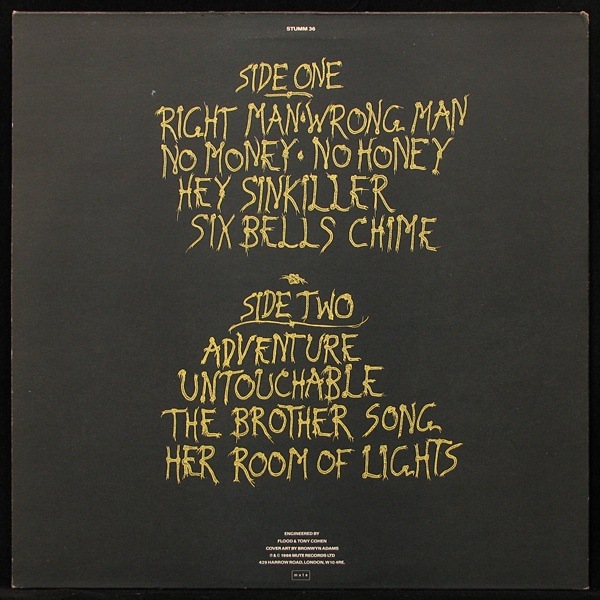 STUMM 36
SIDE ONE
RIGHT MAN·WRONG MAN
NO MONEY·NO HONEY
HEY SINKILLER
SIX BELLS CHIME
SIDE TWO
ADVENTURE
UNTOUCHABLE
THE BROTHER SONG
HER ROOM OF LIGHTS
ENGINEERED BY
FLOOD & TONY COHEN
COVER ART BY BRONWYN ADAMS
℗ & © 1986 MUTE RECORDS LTD
429 HARROW ROAD, LONDON, W10 4RE.
mute